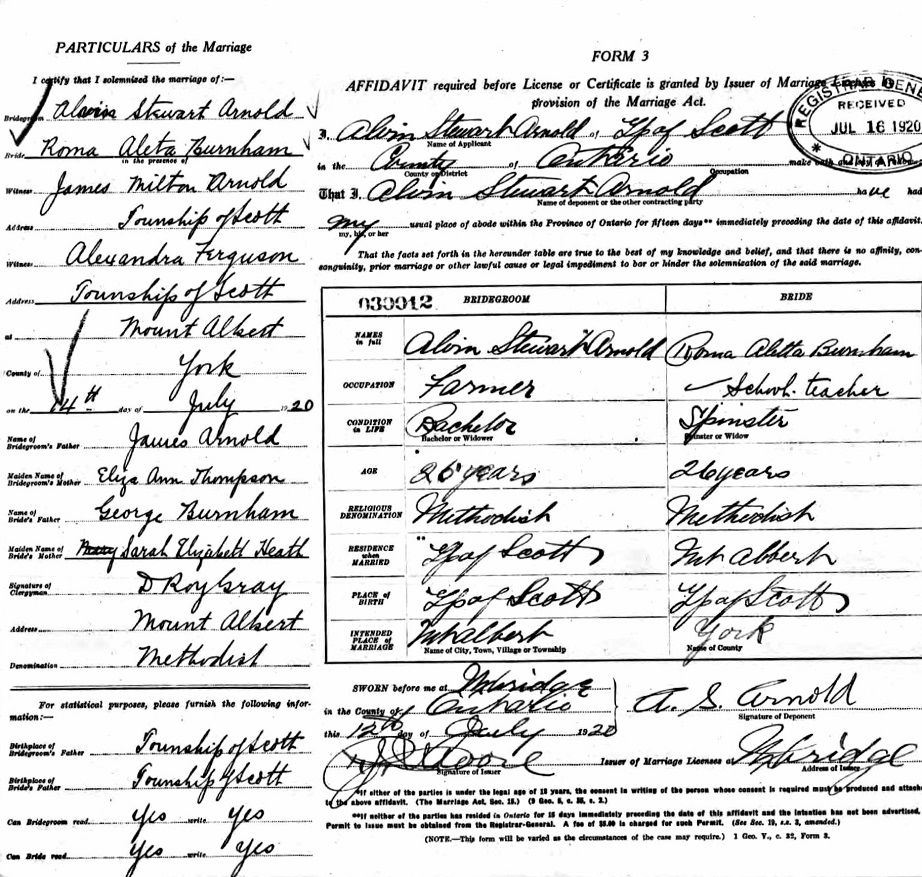 PARTICULARS of the Marriage
I certify that I solemnized the marriage of:—
Bridegroom Alavin Stewart Arnold
Bride Roma Aleta Burnham
in the presence of
Witness James Milton Arnold
Address Township of Scott
Witness Alexandra Ferguson
Address Township of Scott
at Mount Albert
County of York
on the 14th day of July 1920
Name of Bridegroom's Father James Arnold
Maiden Name of Bridegroom's Mother Eliza Ann Thompson
Name of Bride's Father George Burnham
Maiden Name of Bride's Mother Sarah Elizabeth Heath
Signature of Clergyman D Roy Gray
Address Mount Albert
Denomination Methodist
For statistical purposes, please furnish the following infor-
mation:—
Birthplace of Bridegroom's Father Township of Scott
Birthplace of Bride's Father Township of Scott
Can Bridegroom read yes write yes
Can Bride read yes write yes
FORM 3
AFFIDAVIT required before License or Certificate is granted by Issuer of Marriage
provision of the Marriage Act.
REGISTRAR GENE
RECEIVED
JUL 16 1920
ONTARIO
I, Alvin Stewart Arnold of Tp of Scott
Name of Applicant
in the County of Ontario make oath and
County or District Occupation
That I, Alvin Stewart Arnold have had
Name of deponent or the other contracting party
my usual place of abode within the Province of Ontario for fifteen days** immediately preceding the date of this affidavit.
my, his, or her
That the facts set forth in the hereunder table are true to the best of my knowledge and belief, and that there is no affinity, con-
sanguinity, prior marriage or other lawful cause or legal impediment to bar or hinder the solemnization of the said marriage.
030012 BRIDEGROOM BRIDE
NAMES in full Alvin Stewart Arnold Roma Aletta Burnham
OCCUPATION Farmer School teacher
CONDITION in LIFE Bachelor Spinster
Bachelor or Widower Spinster or Widow
AGE 26 years
RELIGIOUS DENOMINATION Methodish Methodish
RESIDENCE when MARRIED Tp of Scott Mt Albert
PLACE OF BIRTH Tp of Scott Tp of Scott
INTENDED PLACE of MARRIAGE Mt Albert York
Name of City, Town, Village or Township Name of County
SWORN before me at Uxbridge
in the County of Ontario
this 12th day of July 1920
A. S. Arnold
Signature of Deponent
Moore
Signature of Issuer
Issuer of Marriage Licenses Uxbridge
Address of Issuer
*If either of the parties is under the legal age of 18 years, the consent in writing of the person whose consent is required must be produced and attache
to the above affidavit. (The Marriage Act, Sec. 15.) (9 Geo. 5, c. 35, s. 2.)
**If neither of the parties has resided in Ontario for 15 days immediately preceding the date of this affidavit and the intention has not been advertised,
Permit to issue must be obtained from the Registrar-General. A fee of $5.00 is charged for such Permit. (See Sec. 19, s.s. 2, amended.)
(NOTE.—This form will be varied as the circumstances of the case may require.) 1 Geo. V., c. 32, Form 3.